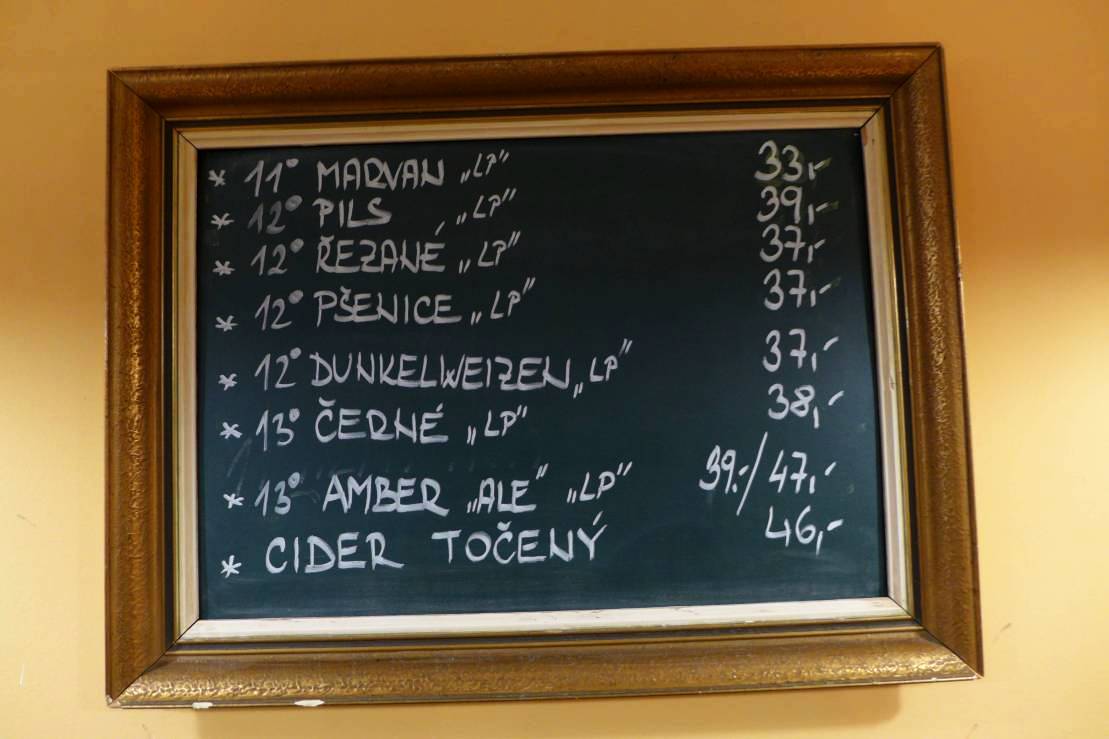 * 11° MARVAN „LP“ 33,-
* 12° PILS „LP“ 39,-
* 12° ŘEZANÉ „LP“ 37,-
* 12° PŠENICE „LP“ 37,-
* 12° DUNKELWEIZEN „LP“ 37,-
* 13° ČERNÉ „LP“ 38,-
* 13° AMBER „ALE“ „LP“ 39.-/47,-
* CIDER TOČENÝ 46,-